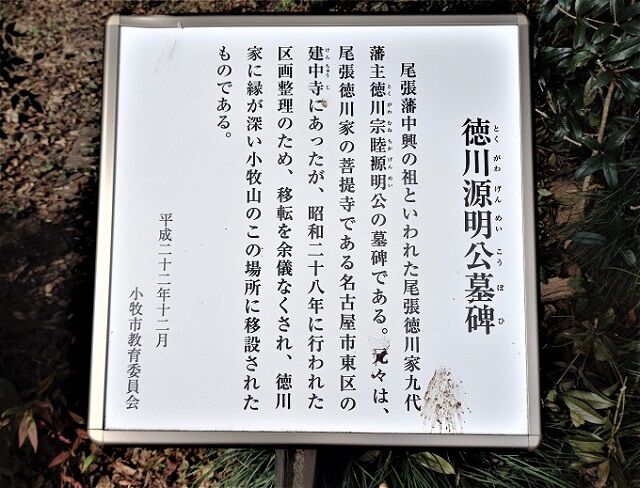 徳川源明公墓碑
とくがわげんめいこうぼひ
尾張藩中興の祖といわれた尾張徳川家九代
藩主徳川宗睦源明公の墓碑である。元々は、
とくがわむねちかげんめい
尾張徳川家の菩提寺である名古屋市東区の
建中寺にあったが、昭和二十八年に行われた
けんちゅうじ
区画整理のため、移転を余儀なくされ、徳川
家に縁が深い小牧山のこの場所に移設された
ものである。
平成二十二年十二月
小牧市教育委員会